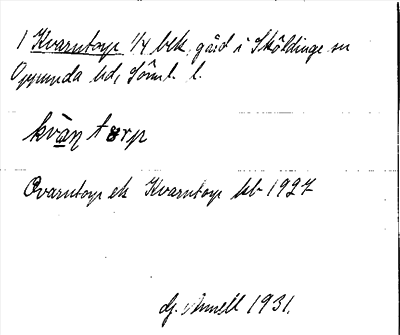 1 Kvarntorp 1/4 bek. gård i Sköldinge sn
Oppunda hd, Söml. l.
kvàn tørp
Qvarntorp ek Kvarntorp kb 1927
Hj. Annell 1931.